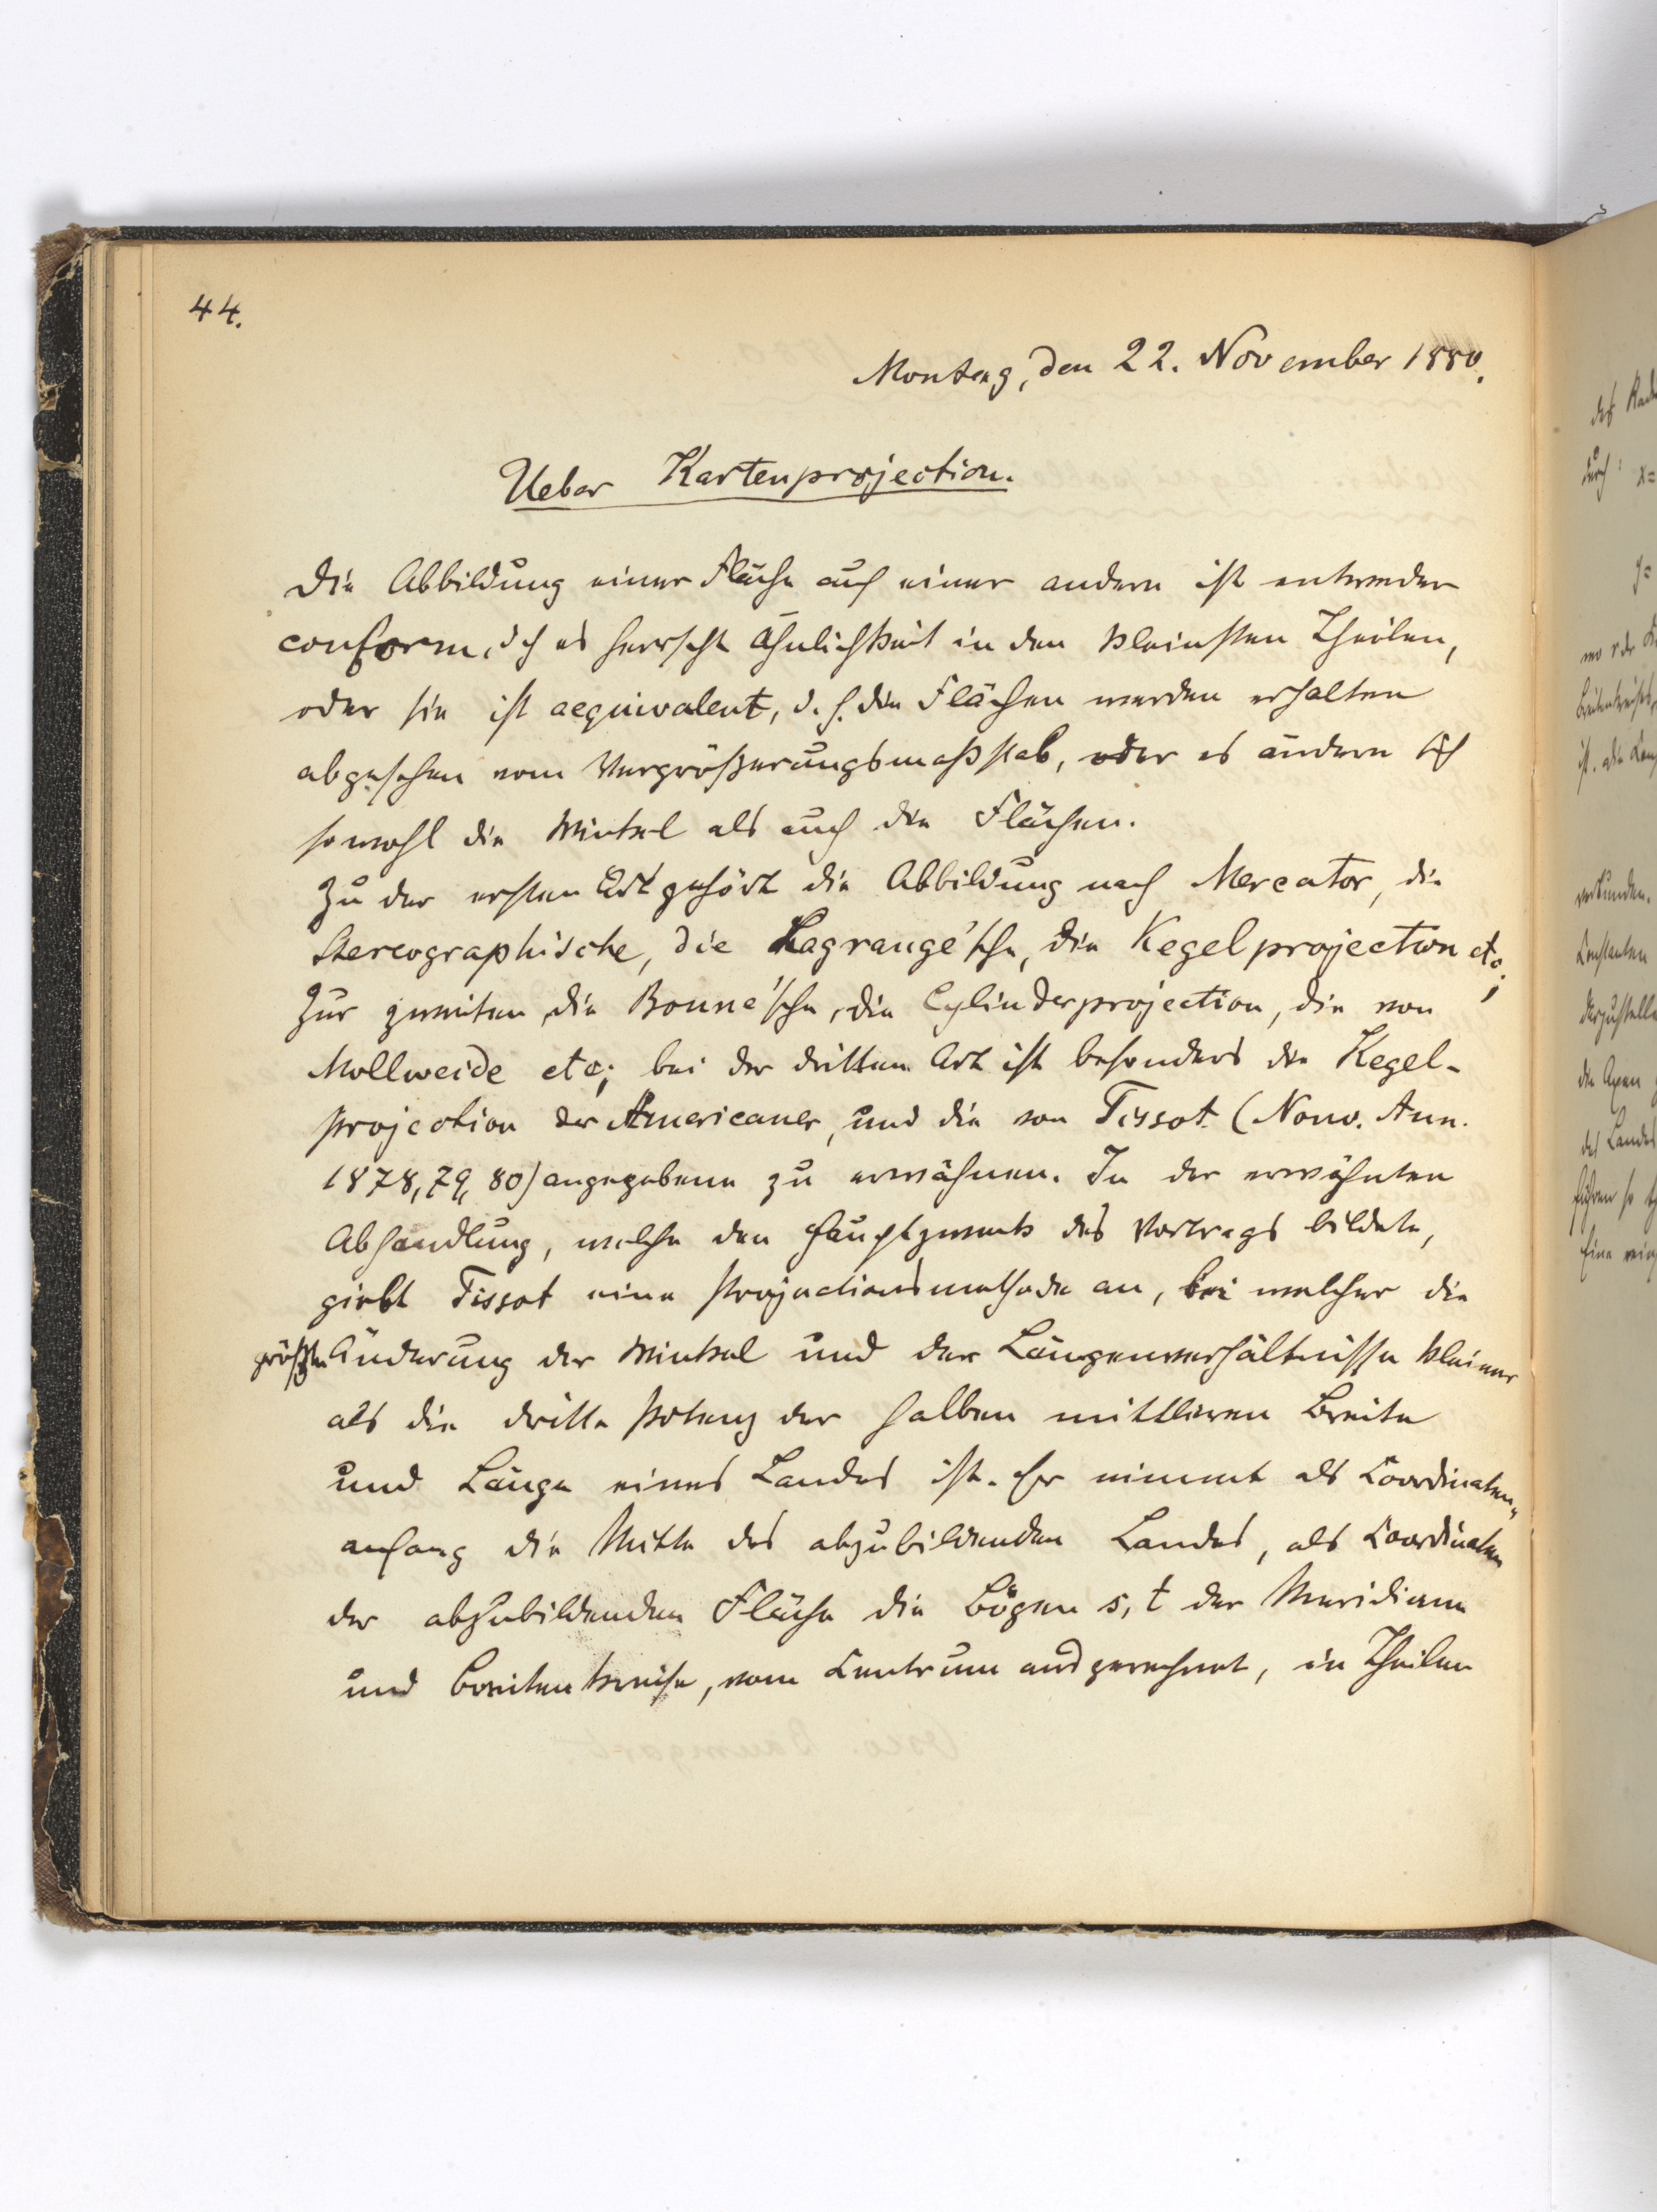 44.
Montag, den 22. November 1880.
Ueber Kartenprojection.
Die Abbildung einer Fläche auf einer andern ist entweder
conform, dh es herrscht Ähnlichkeit in den kleinsten Theilen,
oder sie ist aequivalent, d. h. die Flächen werden erhalten
abgesehen vom Vergrößerungsmaßstab, oder es ändern sich
sowohl die Winkel als auch die Flächen.
Zu der ersten Art gehört die Abbildung nach Mercator, die
Stereographische, die Lagrange'sche, die Kegelprojection etc;
Zur zweiten die Bonne'sche, die Cylinderprojection, die von
Mollweide etc; bei der dritten Art ist besonders die Kegel-
projection der Americaner, und die von Tissot (Nouv. Ann.
1878, 79, 80) angegebene zu erwähnen. In der erwähnten
Abhandlung, welche den Hauptzweck des Vortrags bildete,
giebt Tissot eine Projectionsmethode an, bei welcher die
größte Änderung der Winkel und der Längenverhältnisse kleiner
als die dritte Potenz der halben mittleren Breite
und Länge eines Landes ist. Er nimmt als Coordinaten-
anfang die Mitte des abzubildenden Landes, als Coordinaten
der abzubildenden Fläche die Bögen s, t der Meridiane
und Breitenkreise, vom Centrum aus gerechnet, in Theilen
des
durch: x=
y=
wo r der
ist. die
verbunden.
Constanten
die Axen
des Landes
führen so
Eine